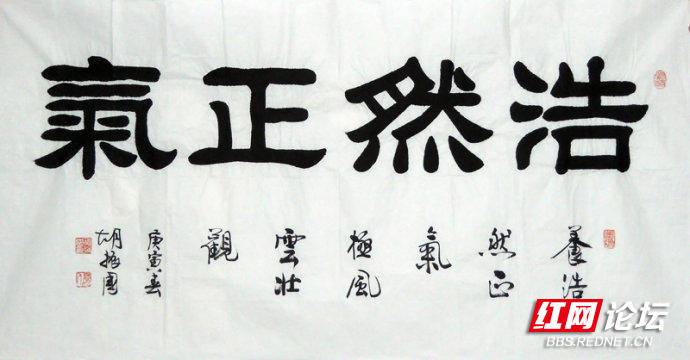 浩然正氣
養浩
然正
氣
極風
雲壯
觀
庚寅春
胡振
红网论坛
BBS.REDNET.CN